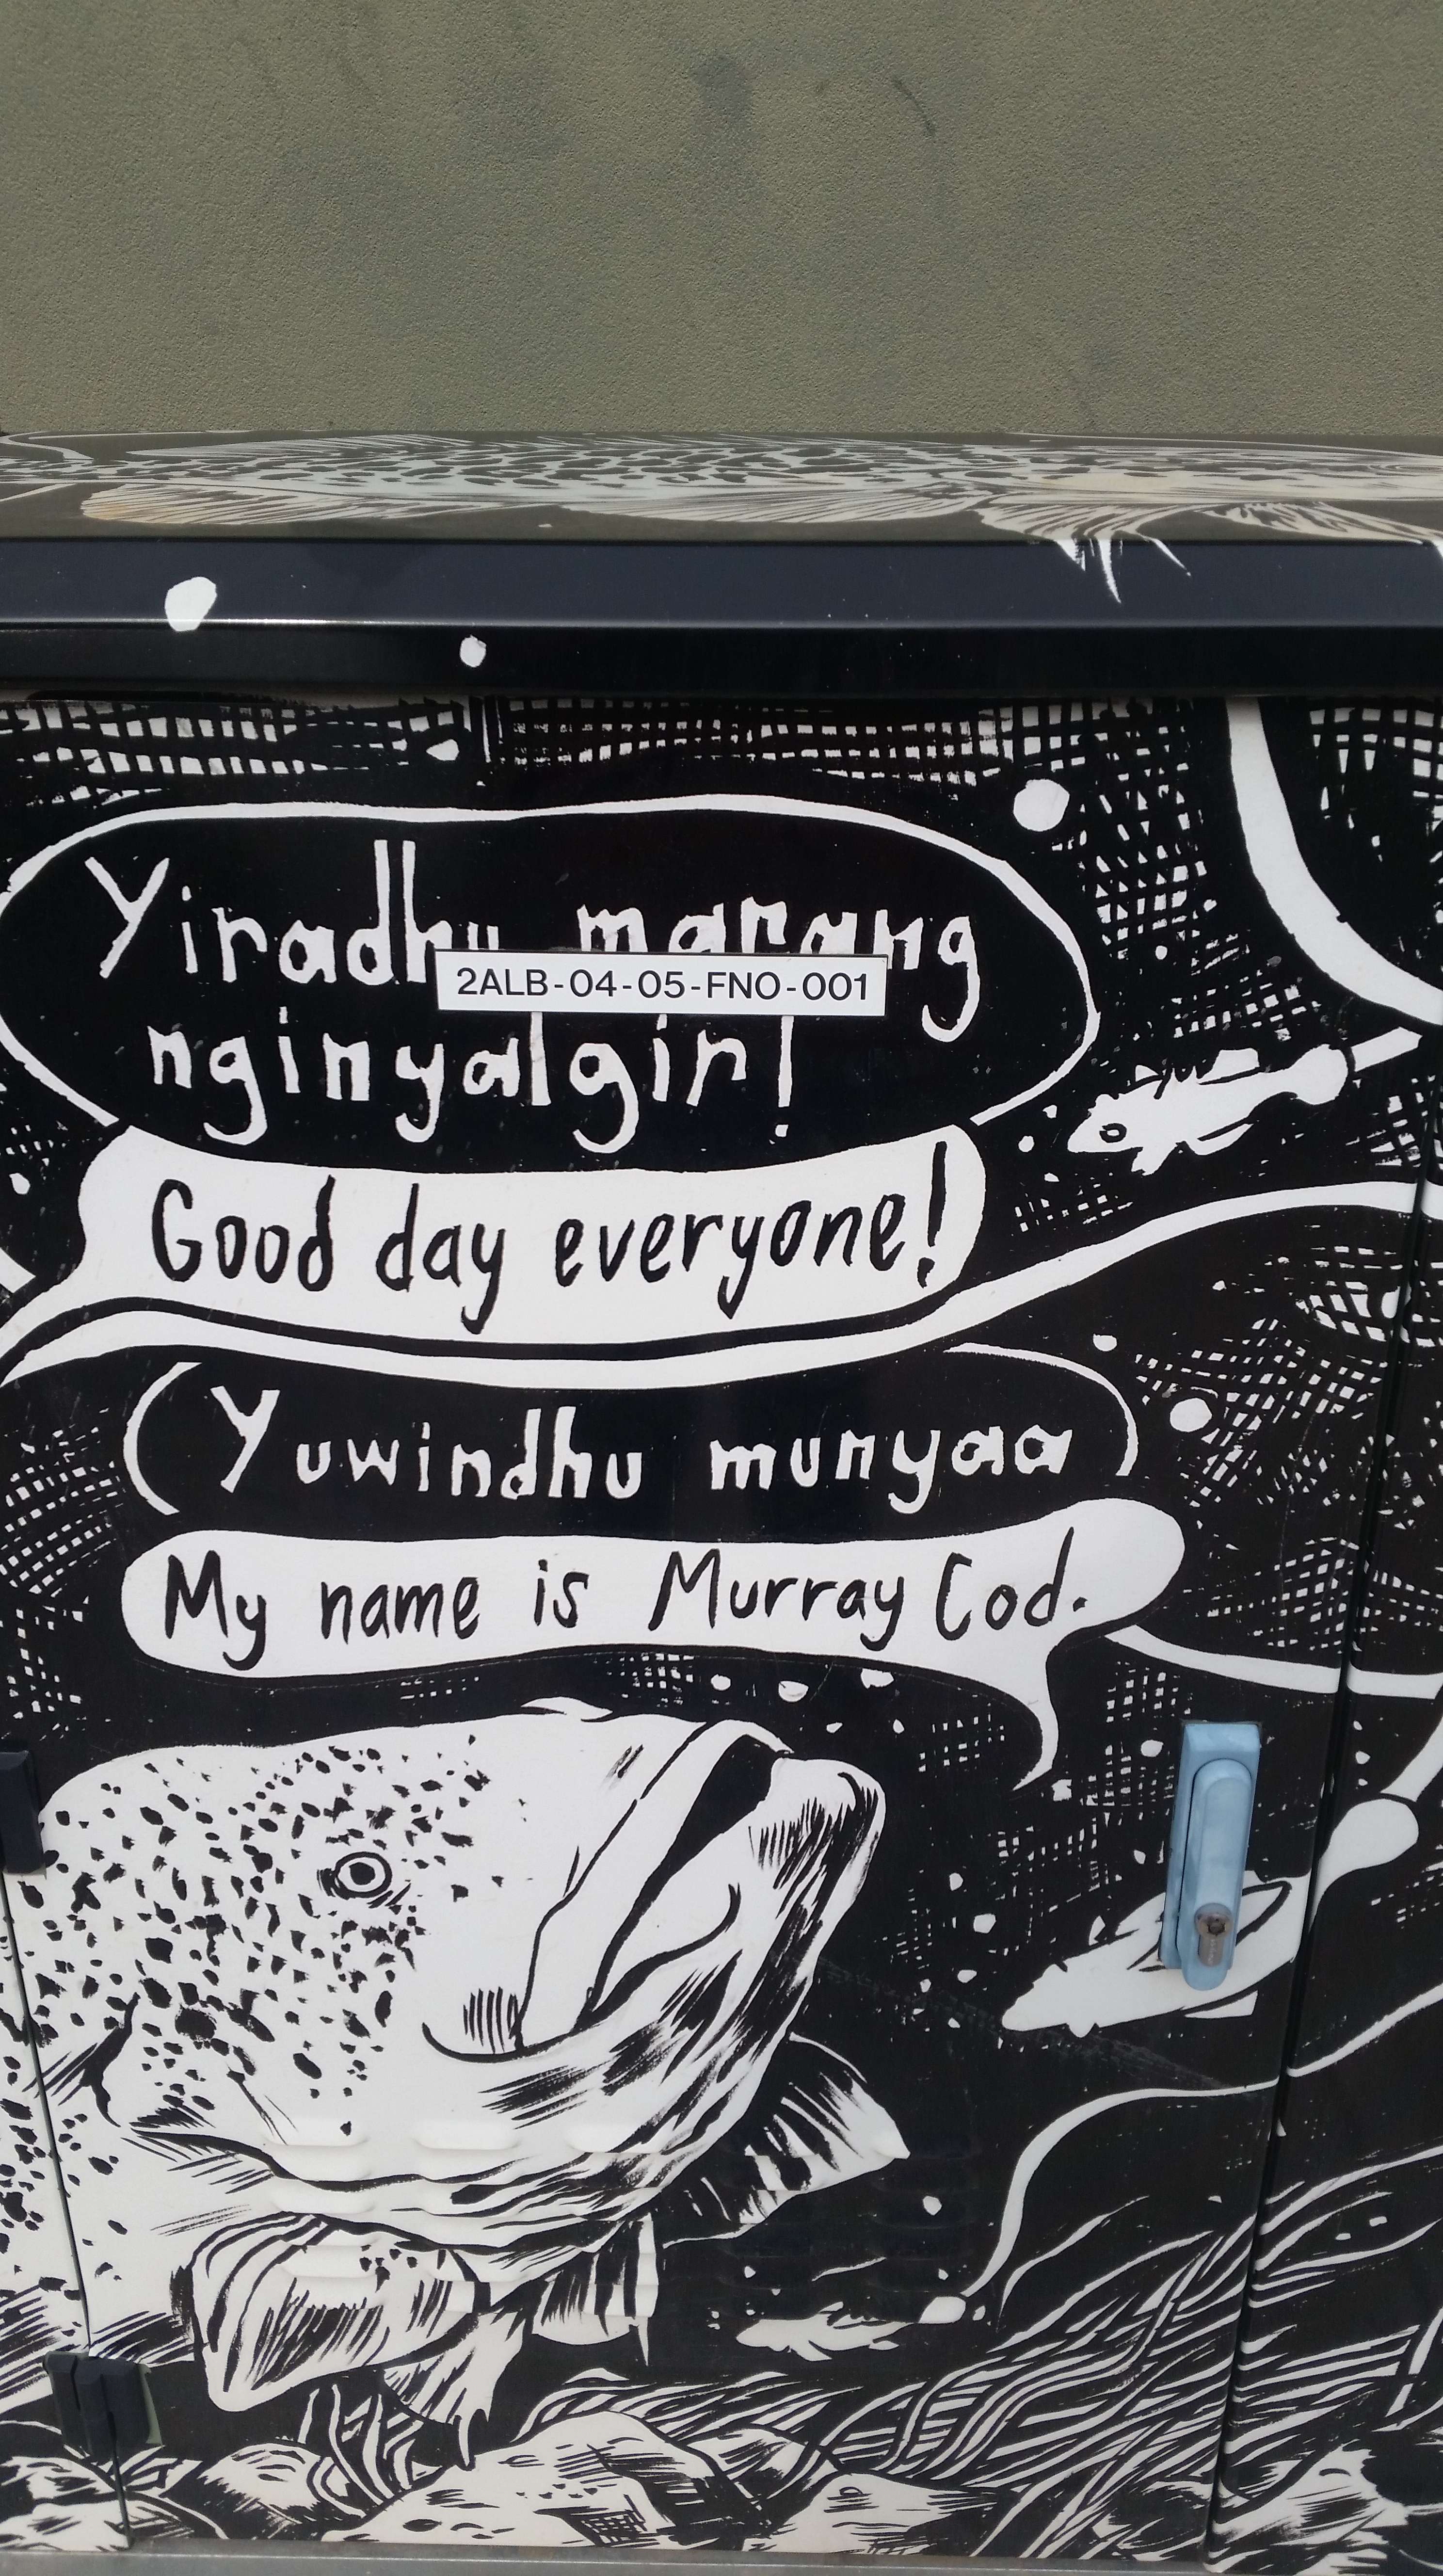 Yiradhu marang
2ALB-04-05-FNO-001
nginyalgir!
Good day everyone!
Yuwindhu munyaa
My name is Murray Cod.